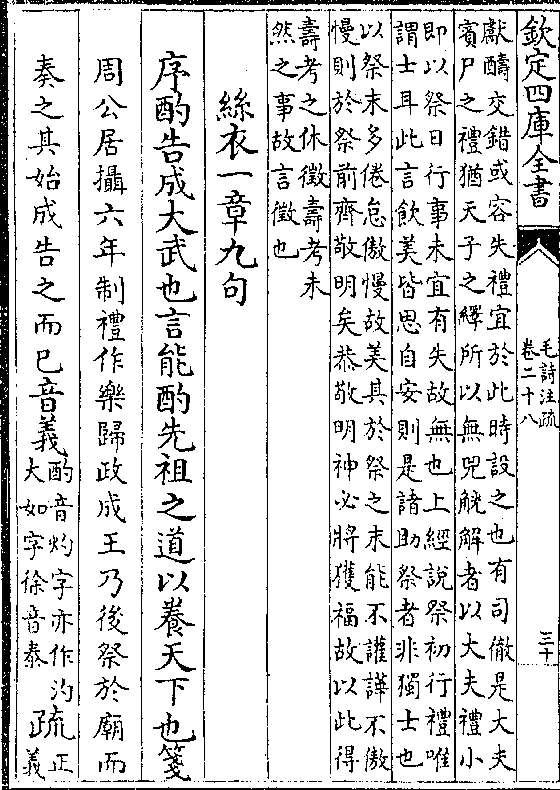 欽定四庫全書
毛詩注疏
卷二十八
三十
獻醻交錯或容失禮宜於此時設之也有司徹是大夫
賓尸之禮猶天子之繹所以無兕觥解者以大夫禮小
即以祭日行事未宜有失故無也上經說祭初行禮唯
謂士耳此言飲美皆思自安則是諸助祭者非獨士也
以祭末多倦怠傲慢故美其於祭之末能不讙譁不傲
慢則於祭前齊敬明矣恭敬明神必將獲福故以此得
壽考之休徵壽考未
然之事故言徵也
絲衣一章九句
序酌告成大武也言能酌先祖之道以養天下也箋
周公居攝六年制禮作樂歸政成王乃後祭於廟而
奏之其始成告之而已音義
酌音灼字亦作汋
大如字徐音泰
疏
正
義